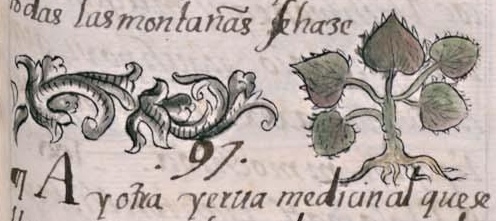 odas las montañas se haze
.97.
¶ Ay otra yerua medicinal que se